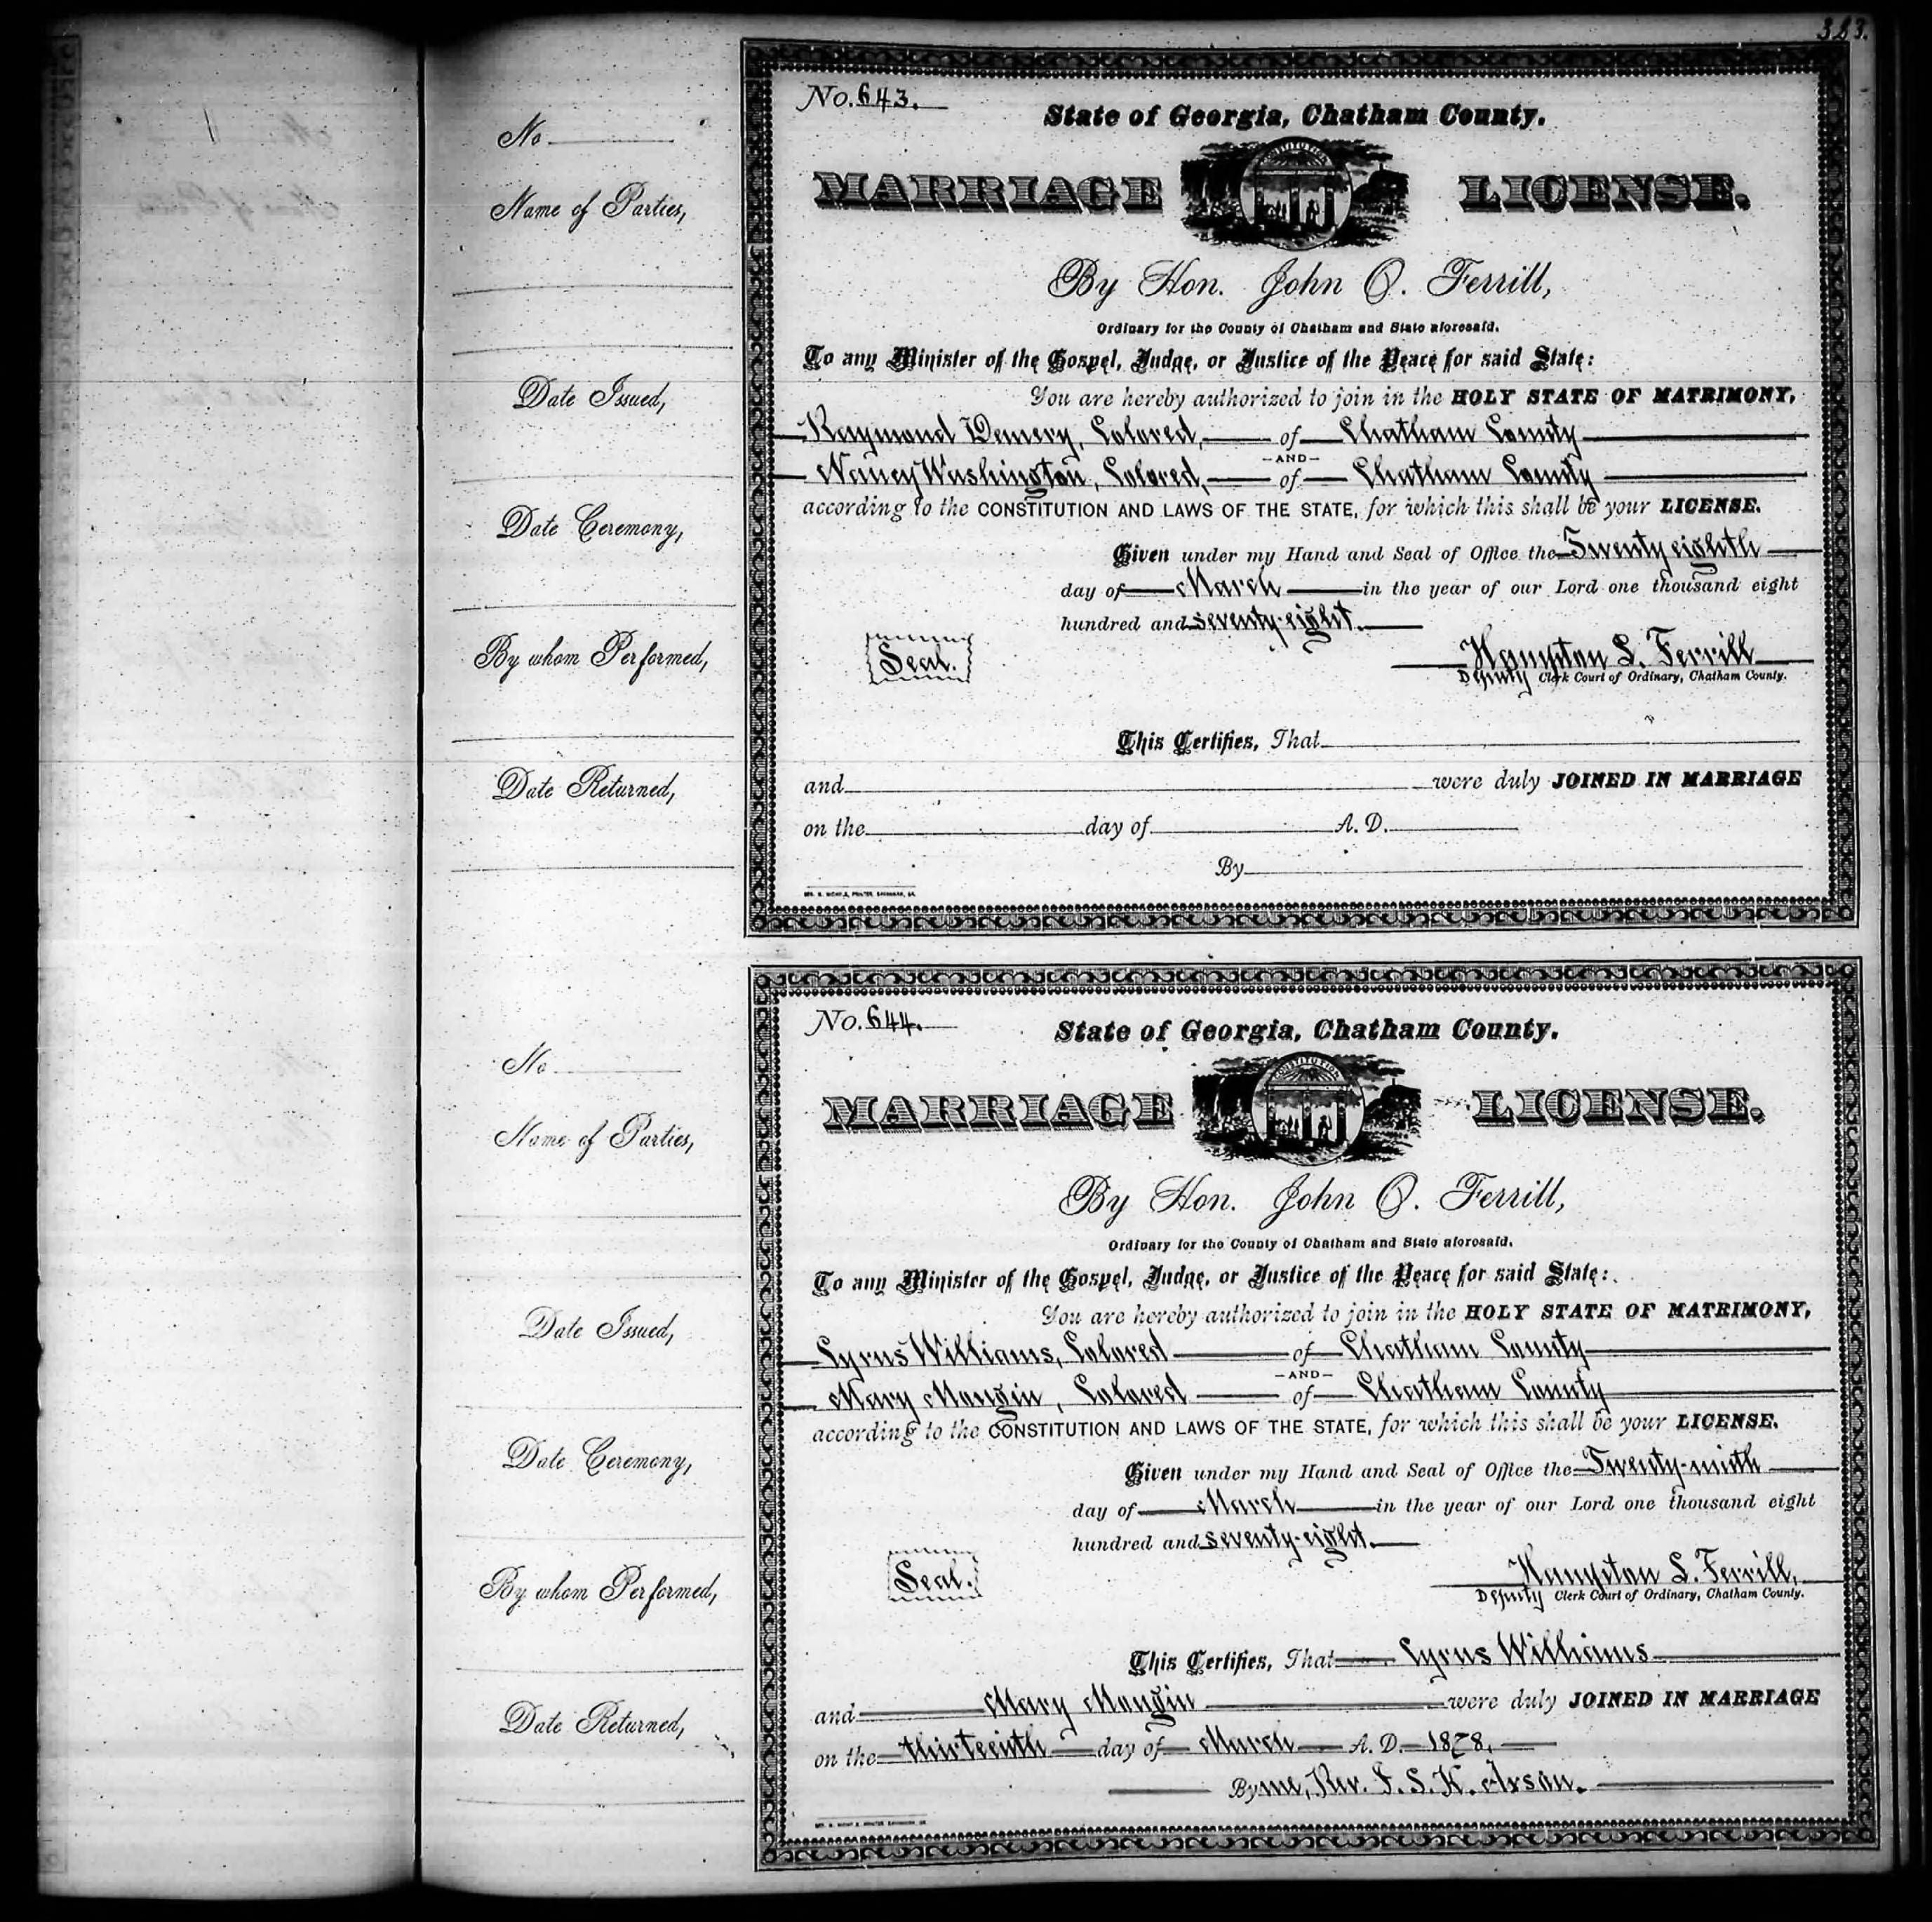 323.
No
Name of Parties,
Date Issued,
Date Ceremony,
By whom Performed,
Date Returned,
No. 643.
State of Georgia, Chatham County.
MARRIAGE LICENSE.
CONSTITUTION
By Hon. John O. Ferrill,
Ordinary for the County of Chatham and State aforesaid.
To any Minister of the Gospel, Judge, or Justice of the Peace for said State:
You are hereby authorized to join in the HOLY STATE OF MATRIMONY,
Raymond Demery, Colored, of Chatham County
-AND-
Nancy Washington, Colored, of Chatham County
according to the CONSTITUTION AND LAWS OF THE STATE, for which this shall be your LICENSE.
Given under my Hand and Seal of Office the Twenty eighth
day of March in the year of our Lord one thousand eight
hundred and seventy-eight.
Seal.
Hampton L. Ferrill
Deputy Clerk Court of Ordinary, Chatham County.
This Certifies, That
and were duly JOINED IN MARRIAGE
on the day of A. D.
By
No
Name of Parties,
Date Issued,
Date Ceremony,
By whom Performed,
Date Returned,
No. 644.
State of Georgia, Chatham County.
MARRIAGE LICENSE.
CONSTITUTION
By Hon. John O. Ferrill,
Ordinary for the County of Chatham and State aforesaid.
To any Minister of the Gospel, Judge, or Justice of the Peace for said State:
You are hereby authorized to join in the HOLY STATE OF MATRIMONY,
Cyrus Williams, Colored of Chatham County
-AND-
Mary Mongin, Colored of Chatham County
according to the CONSTITUTION AND LAWS OF THE STATE, for which this shall be your LICENSE.
Given under my Hand and Seal of Office the Twenty-ninth
day of March in the year of our Lord one thousand eight
hundred and seventy-eight.
Seal.
Hampton L. Ferrill,
Deputy Clerk Court of Ordinary, Chatham County.
This Certifies, That Cyrus Williams
and Mary Mongin were duly JOINED IN MARRIAGE
on the thirteenth day of March A. D. 1878.
By me, Rev. F. S. K.